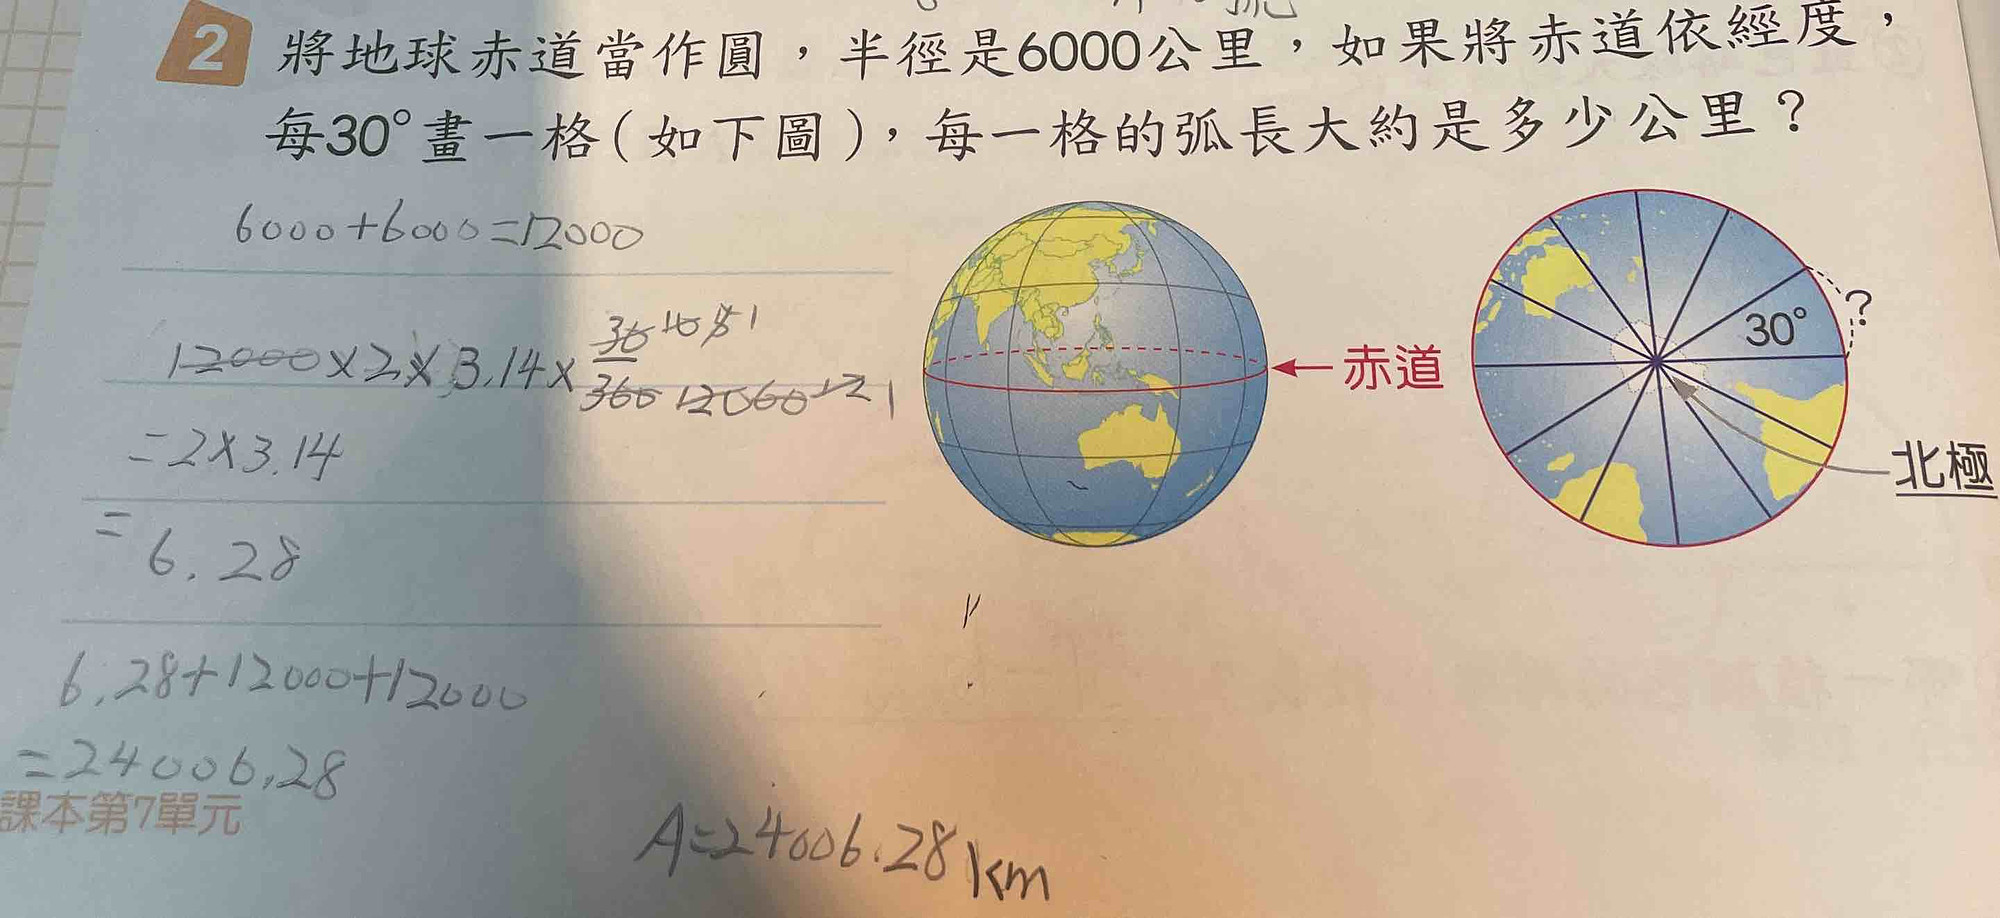 2 將地球赤道當作圓，半徑是6000公里，如果將赤道依經度，
每30°畫一格(如下圖)，每一格的弧長大約是多少公里？
6000+6000=12000
12000×2×3.14×30/360
=2×3.14
=6.28
6.28+12000+12000
=24006.28
A=24006.28km
赤道
30°
?
北極
課本第7單元